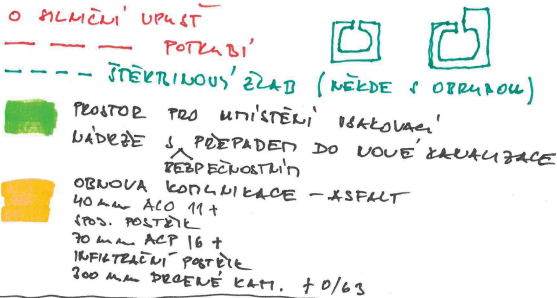 O SILNIČNÍ VPUSŤ
POTRUBÍ
ŠTĚRBINOVÝ ŽLAB (NĚKDE S OBRUBOU)
PROSTOR PRO UMÍSTĚNÍ VSAKOVACÍ
NÁDRŽE S PŘEPADEM DO NOVÉ KANALIZACE
BEZPEČNOSTNÍM
OBNOVA KOMUNIKACE - ASFALT
40 mm ACO 11 +
SPOJ. POSTŘIK
70 mm ACP 16 +
INFILTRAČNÍ POSTŘIK
300 mm DRCENÉ KAM. f 0/63